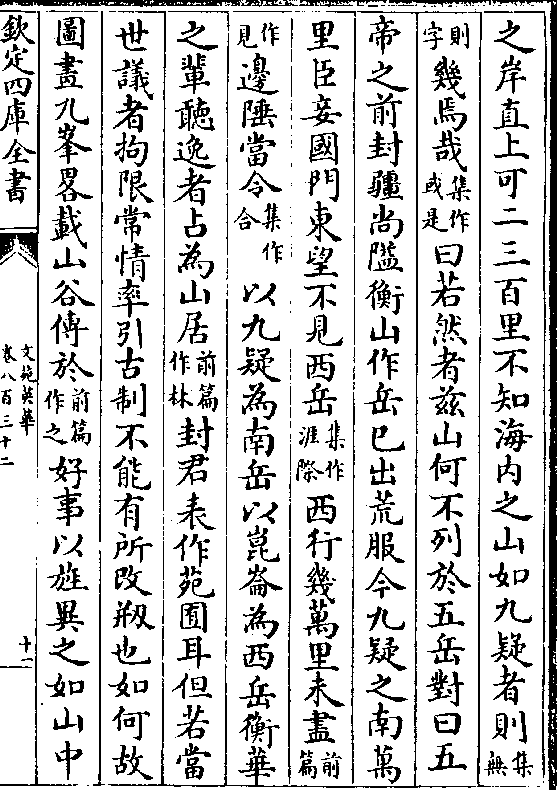 之岸直上可二三百里不知海内之山如九疑者則集無
則字幾焉哉集作或是曰若然者兹山何不列於五岳對曰五
帝之前封疆尚隘衡山作岳已出荒服今九疑之南萬
里臣妾國門東望不見西岳集作涯際西行幾萬里未盡前篇
作見邊陲當令集作合以九疑為南岳以崑崙為西岳衡華
之輩聽逸者占為山居前篇作林封君表作苑囿耳但若當
世議者拘限常情牽引古制不能有所改剏也如何故
圖畫九峯畧載山谷傳於前篇作之好事以旌異之如山中
欽定四庫全書
文苑英華
卷八百三十二
十一